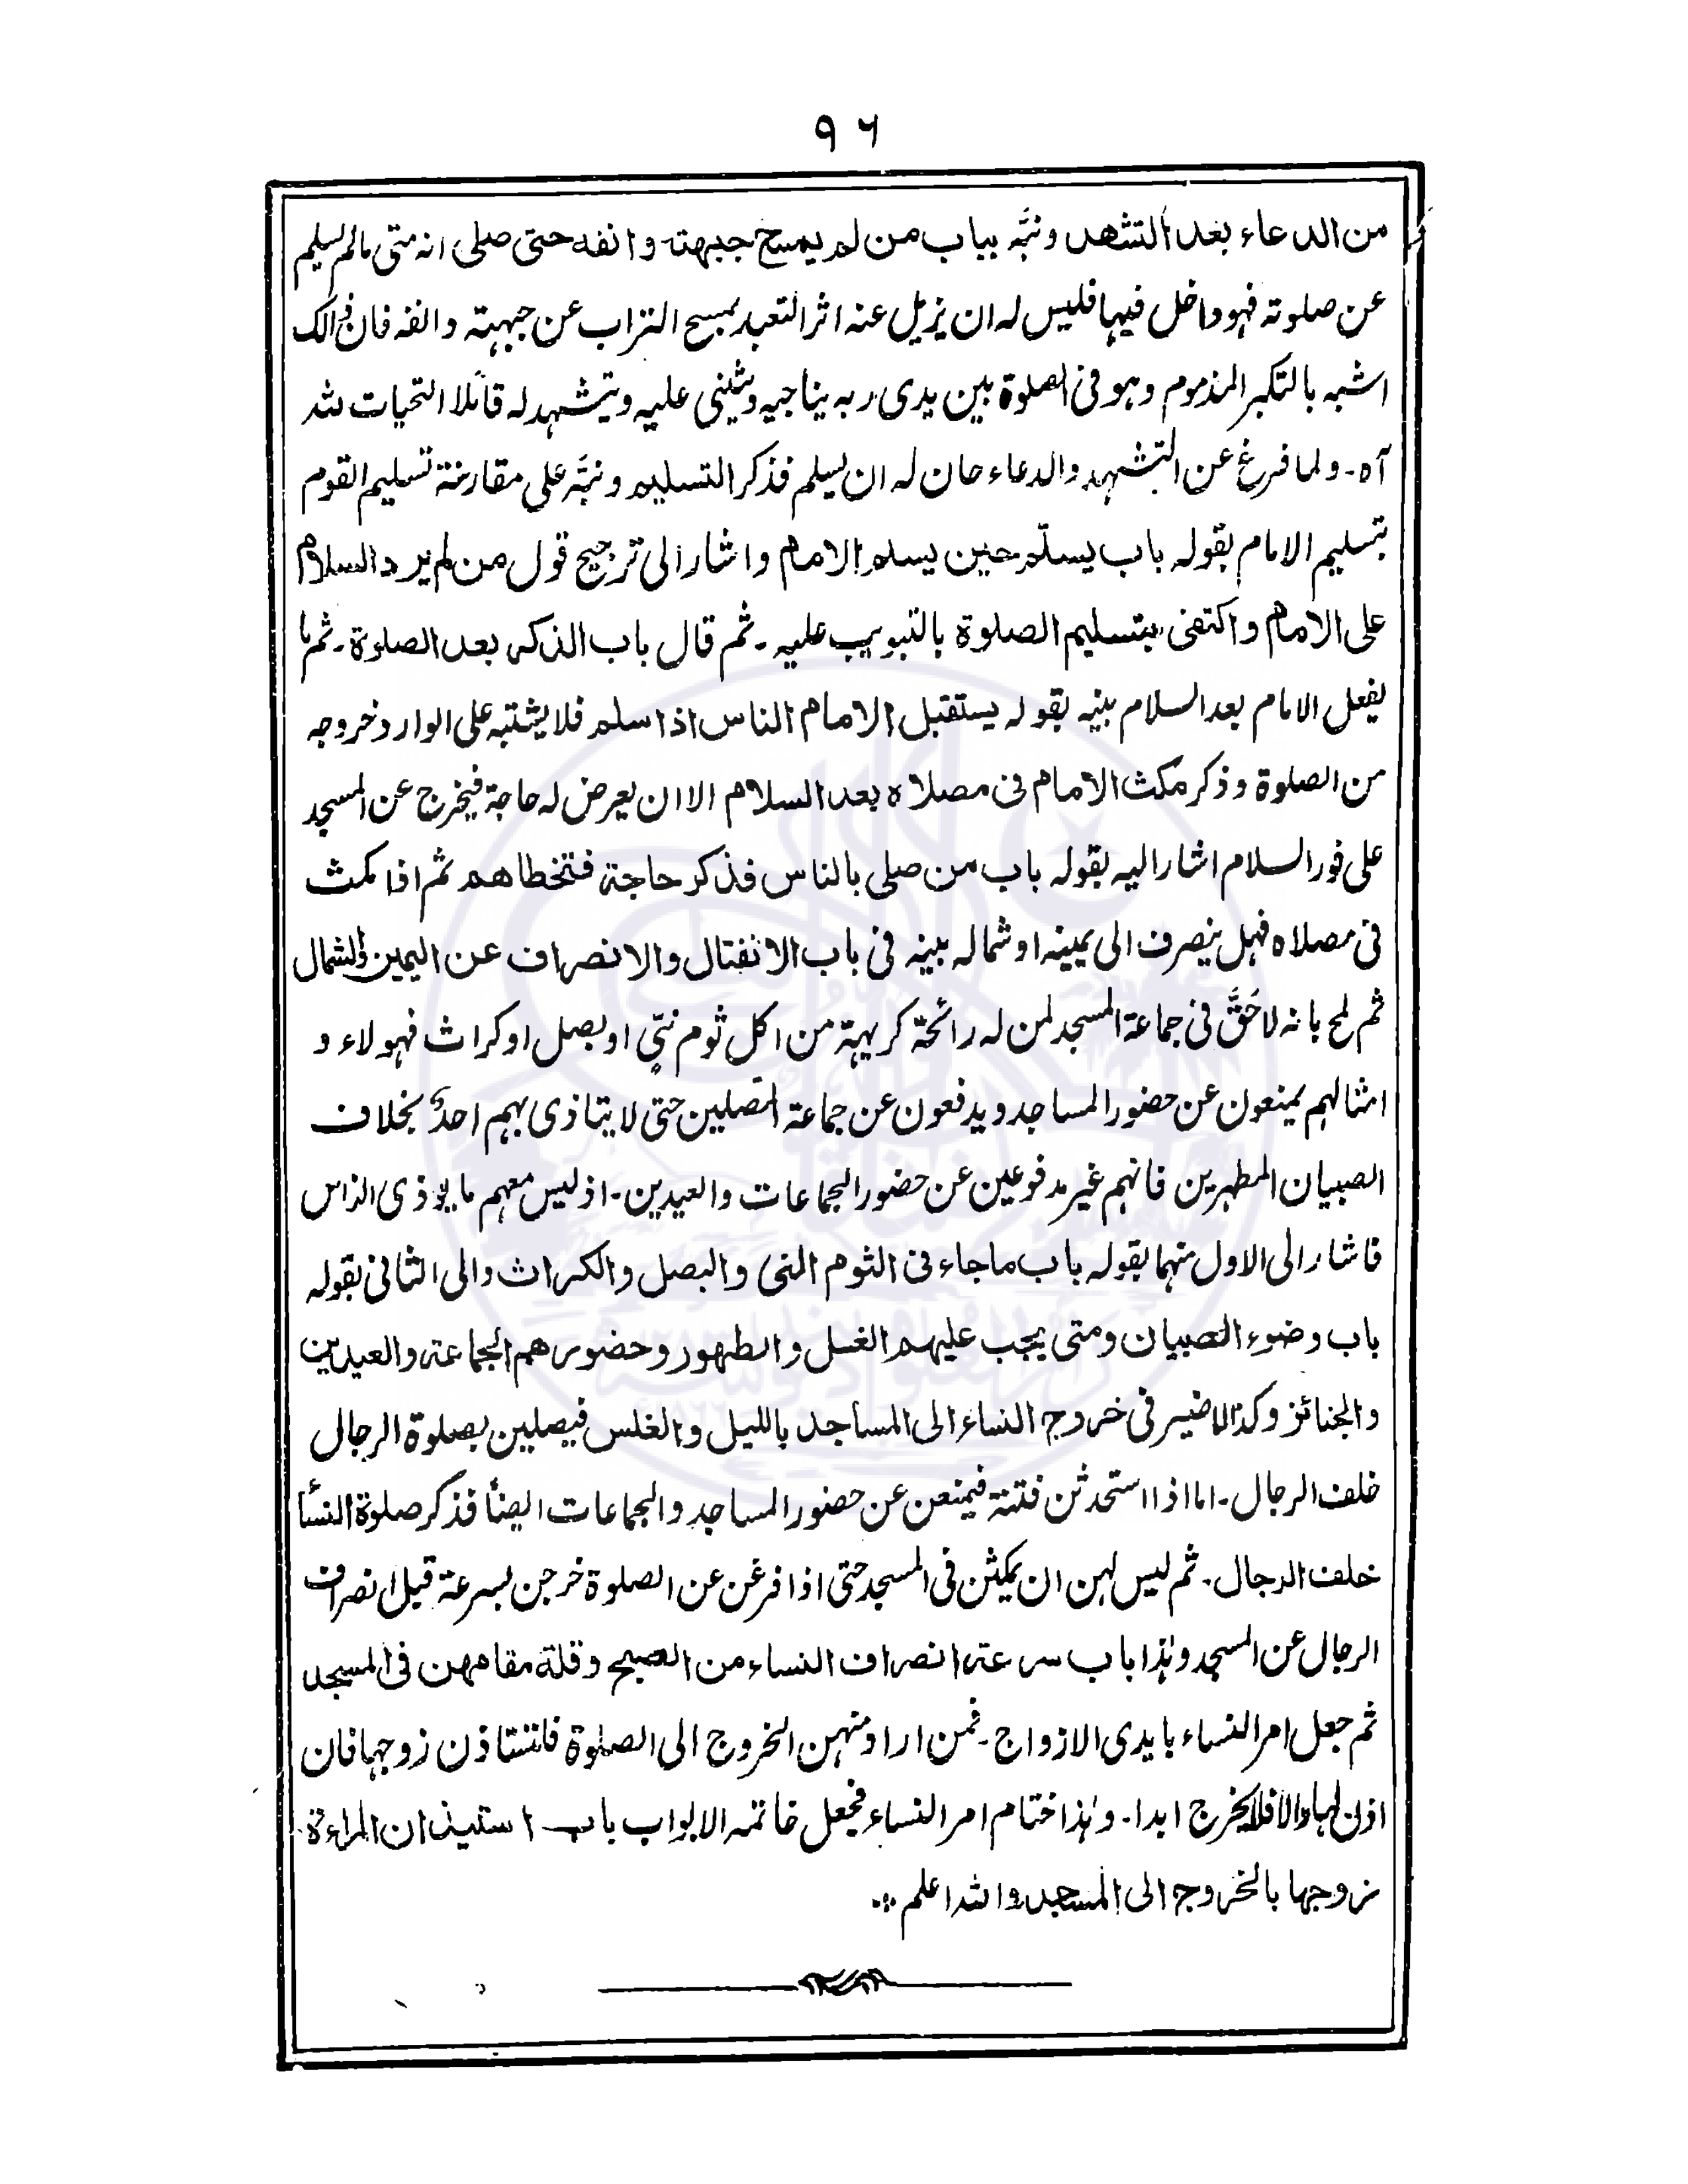 ٩٦
من الدعاء بعد التشهد ونبَّه بباب من لم يمسح جبهته وانفه حتى صلى انه متى مالم يسلم
عن صلوته فهو داخل فيها فليس له ان يزيل عنه اثر التعبد بمسح التراب عن جبهته وانفه فان ذالك
اشبه بالتكبر المذموم وهو فى الصلوة بين يدى ربه يناجيه ويثنى عليه ويتشهد له قائلا التحيات لله
آه۔ ولما فرغ عن التشهد والدعاء حان له ان يسلم فذكر التسليم ونبَّه على مقارنة تسليم القوم
بتسليم الامام بقوله باب يسلّم حين يسلم الامام واشار الى ترجيح قول من لم يرد السلام
على الامام واكتفى بتسليم الصلوة بالتبويب عليه۔ ثم قال باب الذكر بعد الصلوة۔ ثم ما
يفعل الامام بعد السلام بينه بقوله يستقبل الامام الناس اذا سلم فلا يشتبه على الوارد خروجه
من الصلوة وذكر مكث الامام فى مصلاه بعد السلام الا ان يعرض له حاجة فيخرج عن المسجد
على فور السلام اشار اليه بقوله باب من صلى بالناس فذكر حاجة فتخطاهم ثم اذا مكث
فى مصلاه فهل ينصرف الى يمينه او شماله بينه فى باب الانفتال والانصراف عن اليمين والشمال
ثم لمح بانه لا حَقَّ فى جماعة المسجد لمن له رائحة كريهة من اكل ثوم نيّ او بصل او كراث فهولاء و
امثالهم يمنعون عن حضور المساجد ويدفعون عن جماعة المصلين حتى لا يتاذى بهم احدٌ بخلاف
الصبيان المطهرين فانهم غير مدفوعين عن حضور الجماعات والعيدين۔ اذ ليس معهم ما يوذى الناس
فاشار الى الاول منهما بقوله باب ماجاء فى الثوم النى والبصل والكراث والى الثانى بقوله
باب وضوء الصبيان ومتى يجب عليهم الغسل والطهور وحضورهم الجماعة والعيدين
والجنائز وكذا لا ضير فى خروج النساء الى المساجد بالليل والغلس فيصلين بصلوة الرجال
خلف الرجال۔ اما اذا استحدثن فتنة فيمنعن عن حضور المساجد والجماعات ايضًا فذكر صلوة النساء
خلف الرجال۔ ثم ليس لهن ان يمكثن فى المسجد حتى اذا فرغن عن الصلوة خرجن بسرعة قبل انصراف
الرجال عن المسجد وهٰذا باب سرعة انصراف النساء من الصبح وقلة مقامهن فى المسجد
ثم جعل امر النساء بايدى الازواج۔ فمن اراد منهن الخروج الى الصلوة فلتستاذن زوجها فان
اذن لها والا فلا يخرج ابدا۔ وهٰذا ختام امر النساء فجعل خاتمة الابواب باب استيذان المراءة
زوجها بالخروج الى المسجد والله اعلم